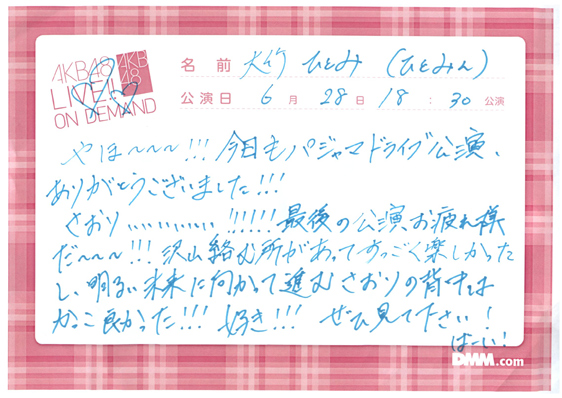 AKB48
LIVE!!
ON DEMAND
AKB
48
名 前 大竹 ひとみ (ひとみん)
公演日 6 月 28 日 18 : 30 公演
やほ〜〜〜!!! 今日もパジャマドライブ公演、
ありがとうございました!!!
さおり、、、、、、、、、、、!!!!!! 最後の公演お疲れ様
だ〜〜〜!!! 沢山絡む所があってすっごく楽しかった
し、明るい未来に向かって進むさおりの背中は
かっこ良かった!!! 好き!!! ぜひ見て下さい!
はーい!
DMM.com